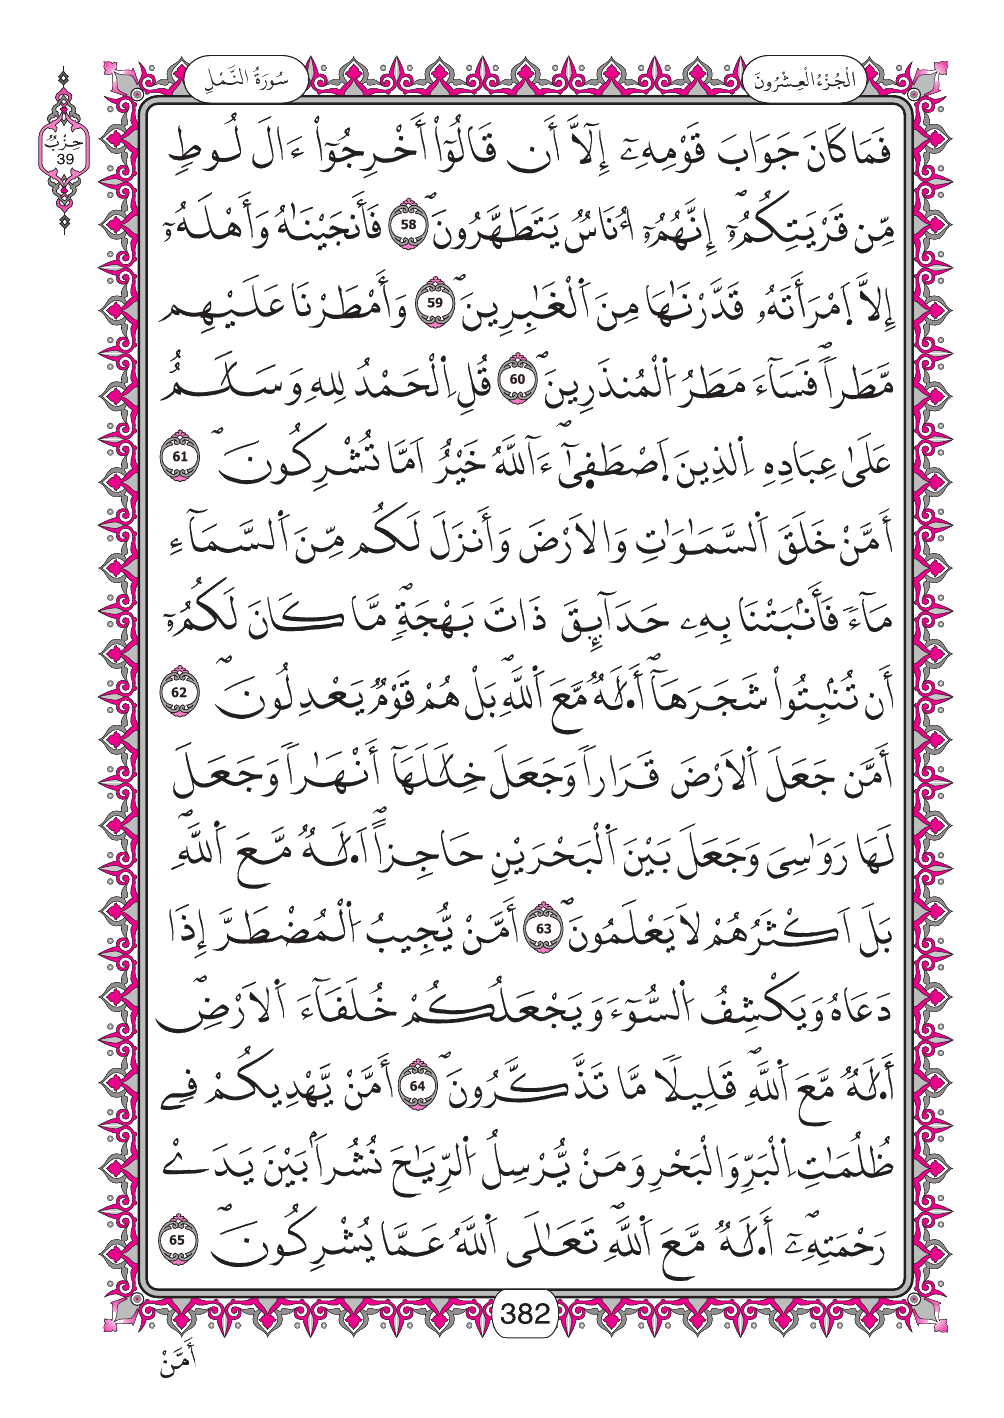 الْجُزْءُ الْعِشْرُونَ
سُورَةُ النَّمْلِ
حِزْبٌ
39
فَمَا كَانَ جَوَابَ قَوْمِهِۦٓ إِلَّآ أَن قَالُوٓاْ أَخْرِجُوٓاْ ءَالَ لُوطٖ
مِّن قَرْيَتِكُمُۥٓۖ إِنَّهُمُۥٓ أُنَاسٞ يَتَطَهَّرُونَۖ 58 فَأَنجَيْنَٰهُ وَأَهْلَهُۥٓ
إِلَّا اَمْرَأَتَهُۥ قَدَّرْنَٰهَا مِنَ اَلْغَٰبِرِينَۖ 59 وَأَمْطَرْنَا عَلَيْهِم
مَّطَراٗۖ فَسَآءَ مَطَرُ اُلْمُنذَرِينَۖ 60 قُلِ اِلْحَمْدُ لِلهِ وَسَلَٰمٌ
عَلَىٰ عِبَادِهِ اِلذِينَ اَصْطَفَىٰٓۖ ءَآللَّهُ خَيْرٌ اَمَّا تُشْرِكُونَۖ 61
أَمَّنْ خَلَقَ اَلسَّمَٰوَٰتِ وَالَارْضَ وَأَنزَلَ لَكُم مِّنَ اَلسَّمَآءِ
مَآءٗ فَأَنۢبَتْنَا بِهِۦ حَدَآئِقَ ذَاتَ بَهْجَةٖۖ مَّا كَانَ لَكُمُۥٓ
أَن تُنۢبِتُواْ شَجَرَهَآۖ أَ۟لَٰهٞ مَّعَ اَللَّهِۖ بَلْ هُمْ قَوْمٞ يَعْدِلُونَۖ 62
أَمَّن جَعَلَ اَلَارْضَ قَرَاراٗ وَجَعَلَ خِلَٰلَهَآ أَنْهَٰراٗ وَجَعَلَ
لَهَا رَوَٰسِىَ وَجَعَلَ بَيْنَ اَلْبَحْرَيْنِ حَاجِزاًۖ اَ۟لَٰهٞ مَّعَ اَللَّهِۖ
بَلَ اَكْثَرُهُمْ لَا يَعْلَمُونَۖ 63 أَمَّنْ يُّجِيبُ اُلْمُضْطَرَّ إِذَا
دَعَاهُ وَيَكْشِفُ اُلسُّوٓءَ وَيَجْعَلُكُمْ خُلَفَآءَ اَلَارْضِۖ
أَ۟لَٰهٞ مَّعَ اَللَّهِۖ قَلِيلاٗ مَّا تَذَّكَّرُونَۖ 64 أَمَّنْ يَّهْدِيكُمْ فِے
ظُلُمَٰتِ اِلْبَرِّ وَالْبَحْرِ وَمَنْ يُّرْسِلُ اُلرِّيَٰحَ نُشُراَۢ بَيْنَ يَدَےْ
رَحْمَتِهِۦٓۖ أَ۟لَٰهٞ مَّعَ اَللَّهِۖ تَعَٰلَى اَللَّهُ عَمَّا يُشْرِكُونَۖ 65
382
أَمَّنْ